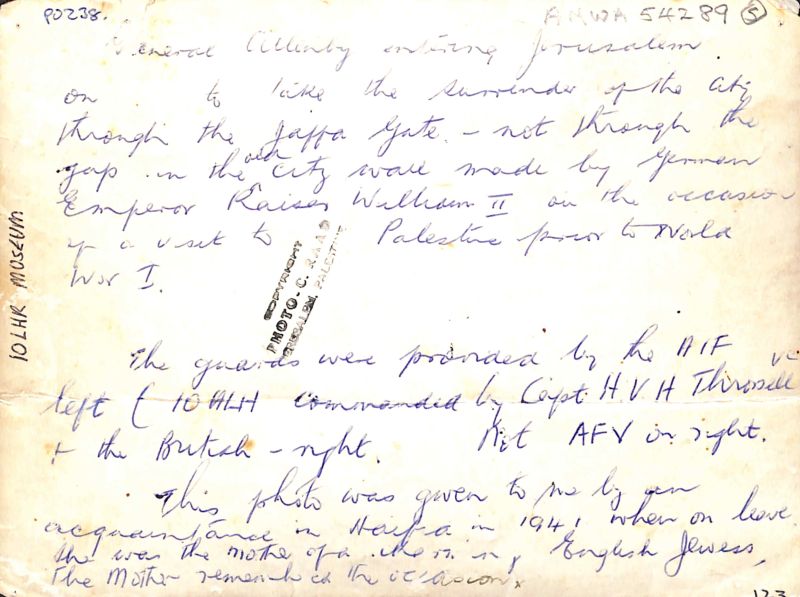 PD238.
AMWA 54289 (5)
General Allenby entering Jerusalem
on to take the surrender of the city
through the Jaffa Gate. - not through the
gap in the old city wall made by German
Emperor Kaiser William II on the occasion
of a visit to Palestine prior to World
War I.
COPYRIGHT
PHOTO. C. RAAD
JERUSALEM, PALESTINE
10LHR MUSEUM
The guards were provided by the AIF
left ( 10 ALH commanded by Capt. H V H Throssell VC
+ the British - right. Not AFV on right.
This photo was given to me by an
acquaintance in Haifa in 1941 when on leave.
She was the mother of a English Jewess,
The Mother remembered the occasion.
123